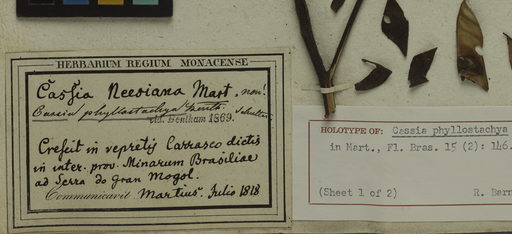 HERBARIUM REGIUM MONACENSE
Caſsia Neesiana Mart. non!
phyllostachya Benth.
vid. Bentham 1869.
Creſcit in vepretis Carrasco dictis
in inter. prov. Minarum Brasiliae
ad Serra do Gran Mogol.
Communicavit Martius. Julio 1818.
HOLOTYPE OF: Cassia phyllostachya
in Mart., Fl. Bras. 15 (2): 146.
(Sheet 1 of 2) R. Barn